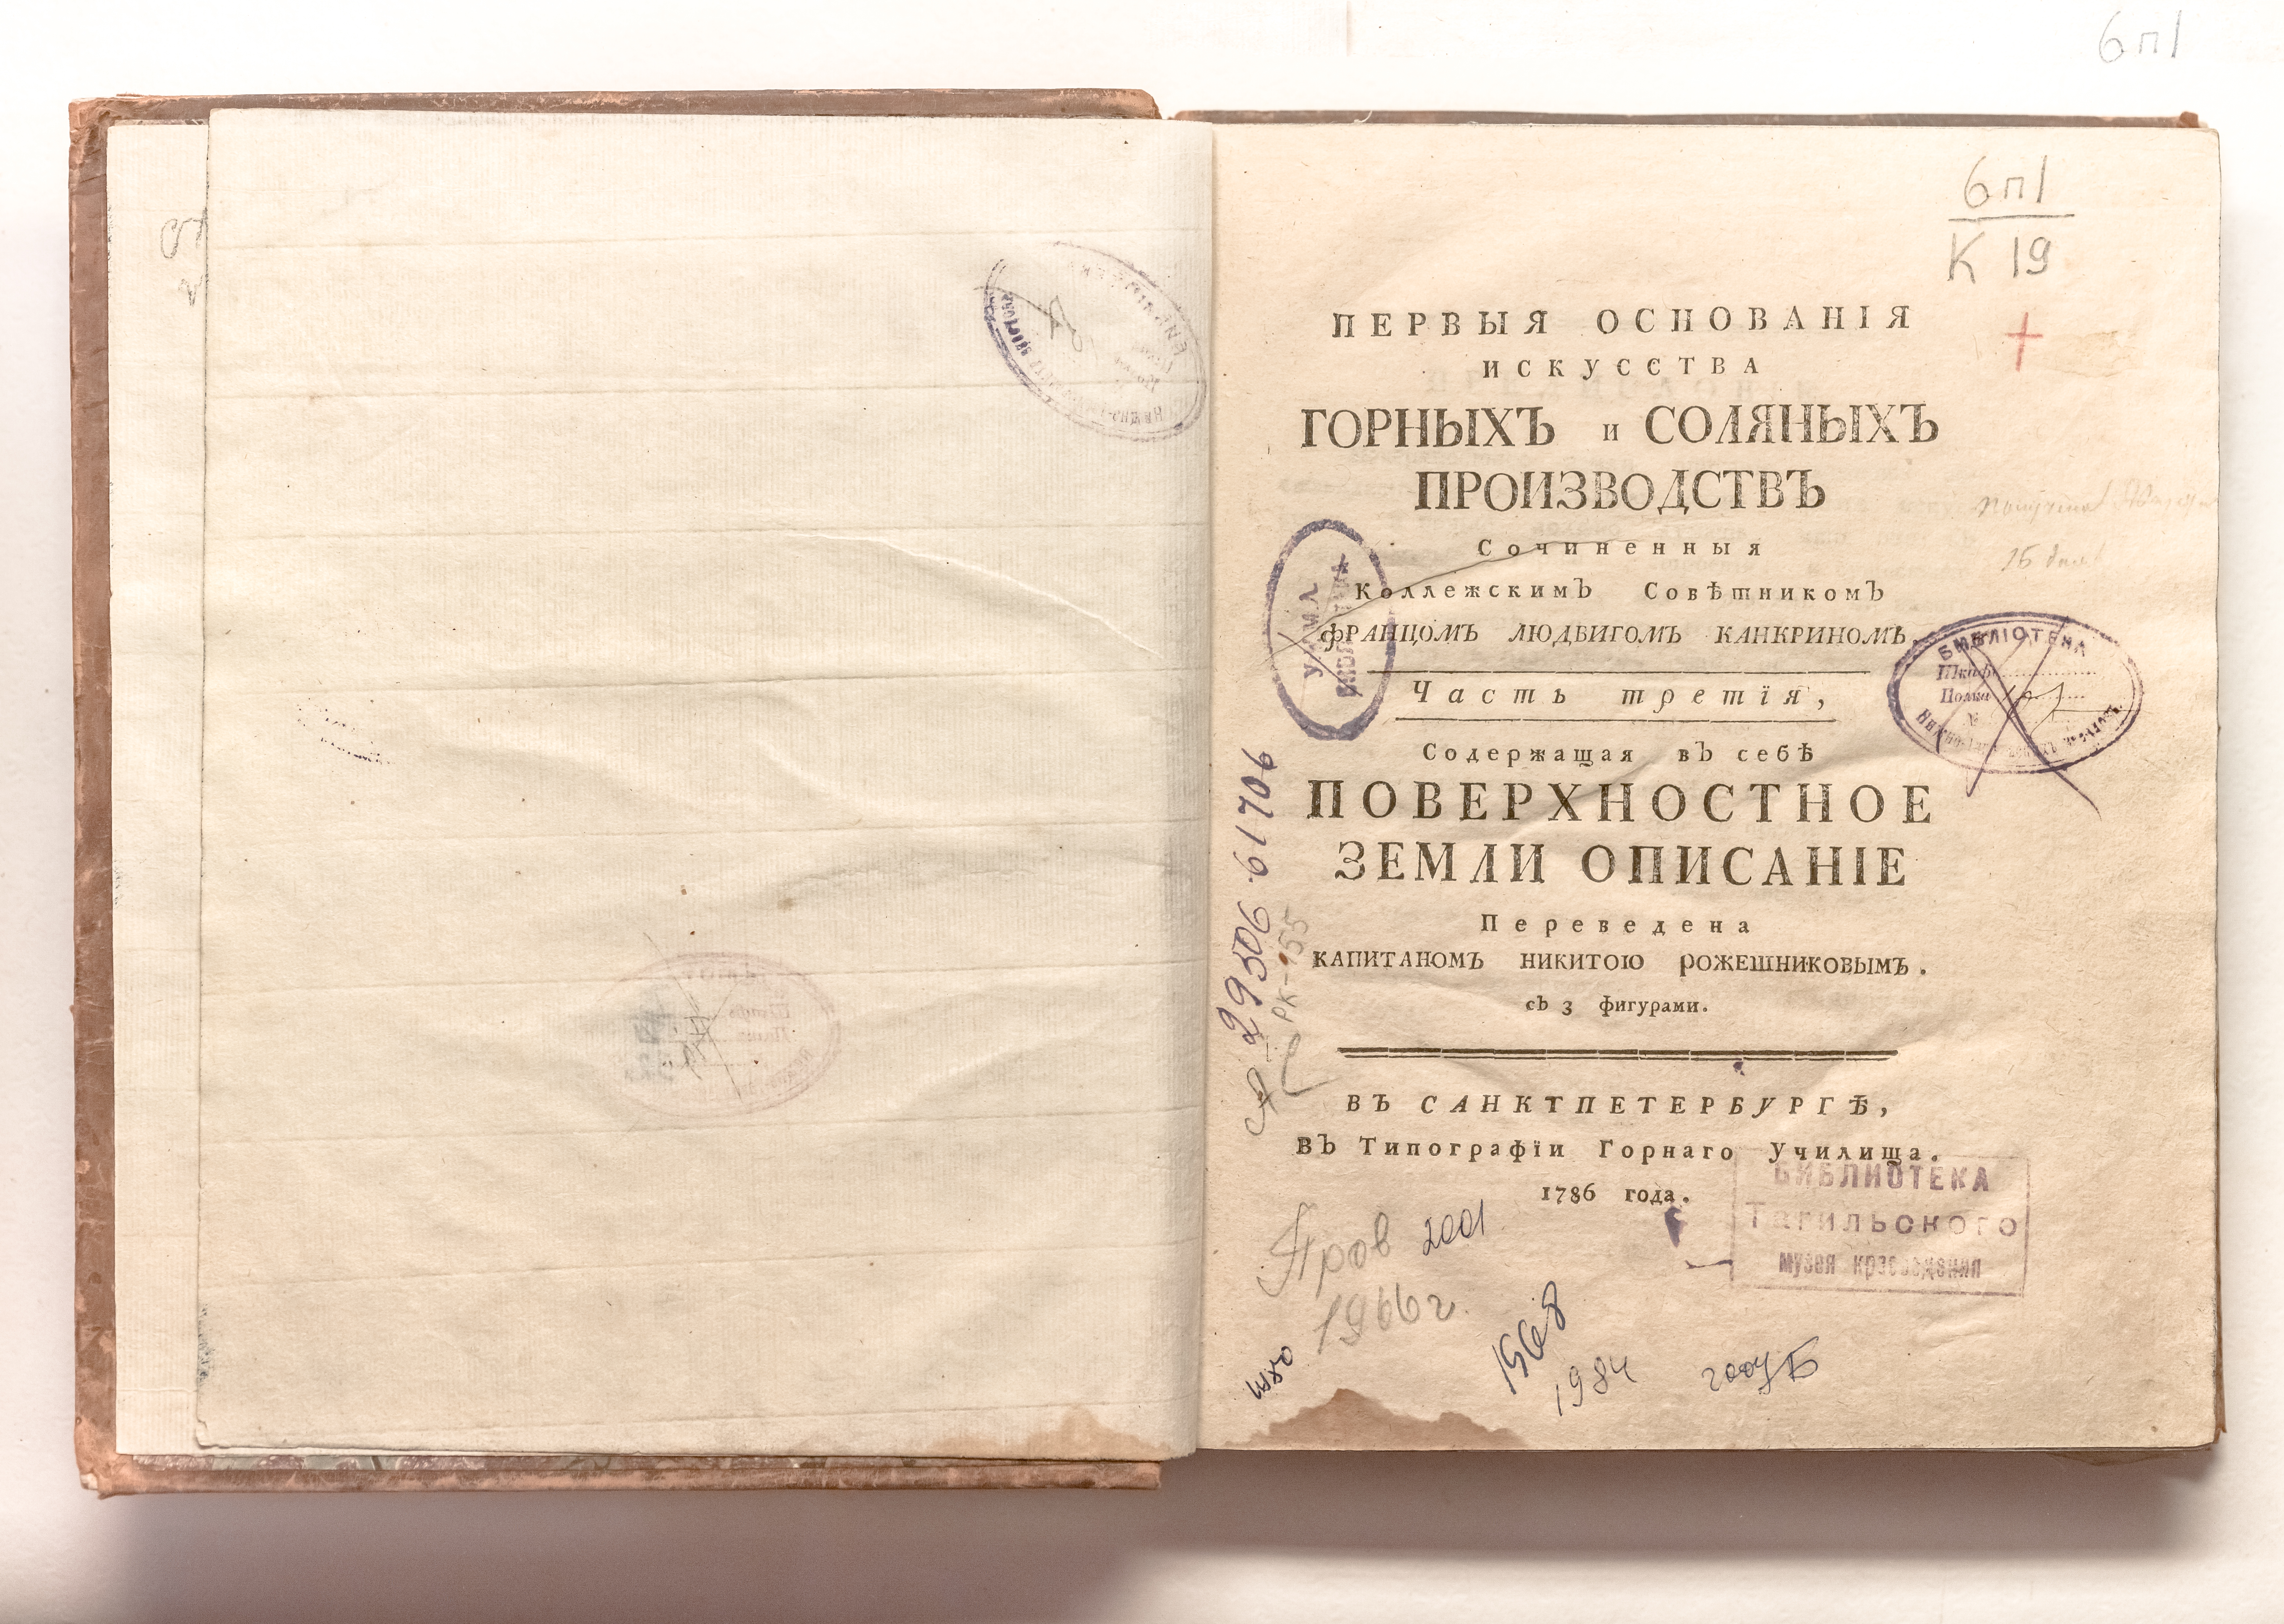 6п1
6п1
К 19
ПЕРВЫЯ ОСНОВАНІЯ
ИСКУССТВА
ГОРНЫХЪ и СОЛЯНЫХЪ
ПРОИЗВОДСТВЪ
Сочиненныя
Коллежскимъ Совѣтникомъ
ФРАНЦОМЪ ЛЮДВИГОМЪ КАНКРИНОМЪ.
Часть третїя,
Содержащая въ себѣ
ПОВЕРХНОСТНОЕ
ЗЕМЛИ ОПИСАНІЕ
Переведена
КАПИТАНОМЪ НИКИТОЮ РОЖЕШНИКОВЫМЪ.
съ 3 фигурами.
ВЪ САНКТПЕТЕРБУРГѢ,
въ Типографїи Горнаго Училища.
1786 года.
БИБЛІОТЕКА
Шкафъ
Полка
№
БИБЛИОТЕКА
Тагильского
музея краеведения
29506 61706
РК-155
Пров 2001
1966г.
1968
1984